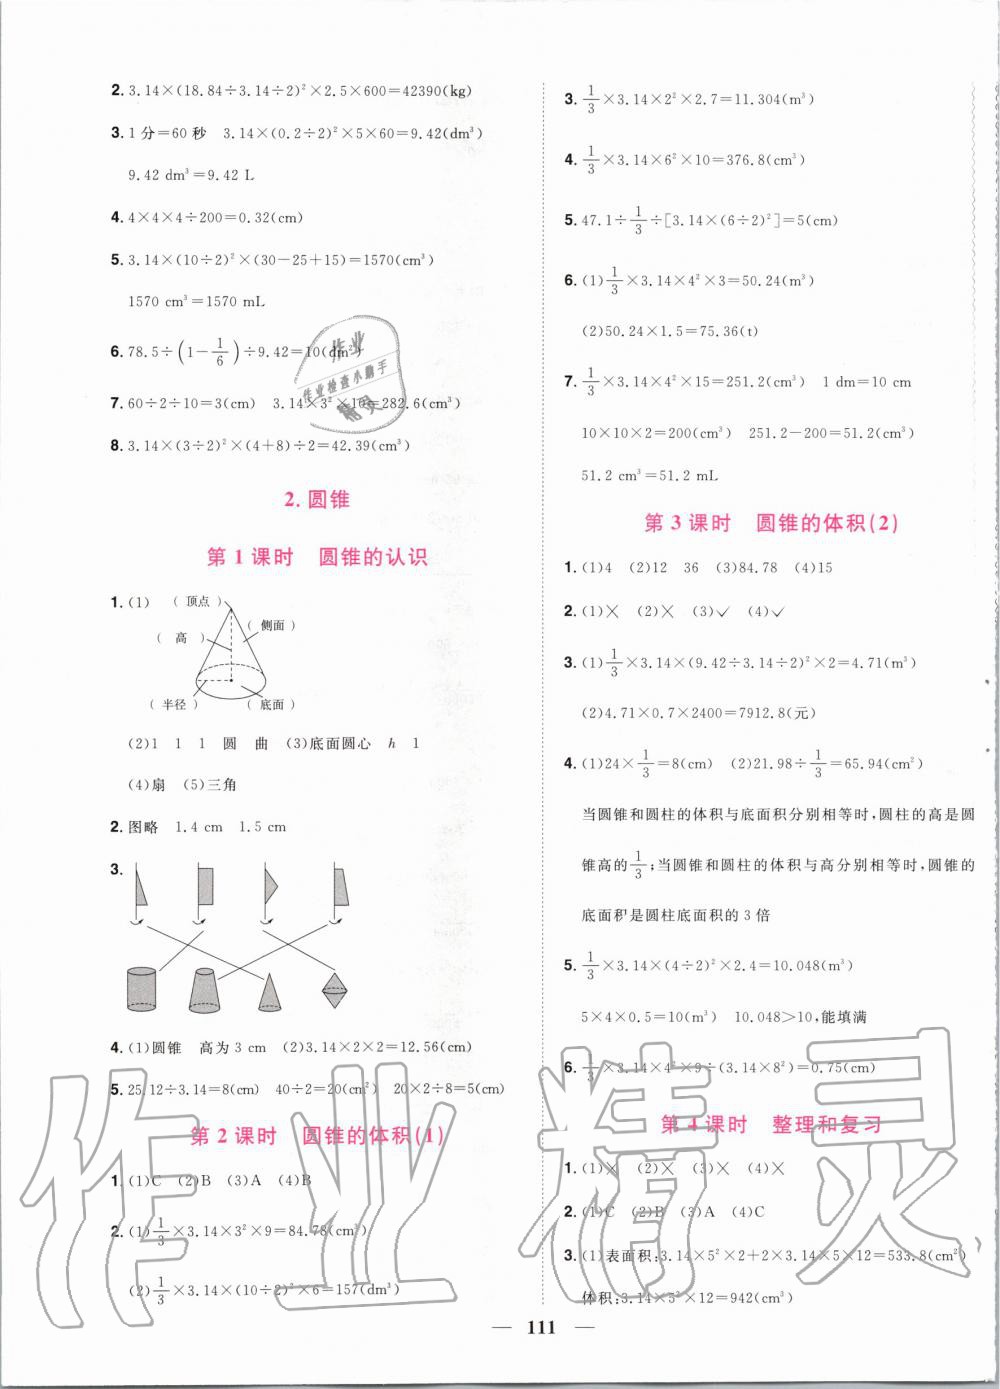 2. 3.14×(18.84÷3.14÷2)²×2.5×600=42390(kg)
3. 1分=60秒 3.14×(0.2÷2)²×5×60=9.42(dm³)
9.42 dm³=9.42 L
4. 4×4×4÷200=0.32(cm)
5. 3.14×(10÷2)²×(30-25+15)=1570(cm³)
1570 cm³=1570 mL
6. 78.5÷(1-1/6)÷9.42=10(dm²)
7. 60÷2÷10=3(cm) 3.14×3²×10=282.6(cm³)
8. 3.14×(3÷2)²×(4+8)÷2=42.39(cm³)
2. 圆锥
第1课时 圆锥的认识
1. (1) (顶点)
(侧面)
(高)
(半径) (底面)
(2)1 1 1 圆 曲 (3)底面圆心 h 1
(4)扇 (5)三角
2. 图略 1.4 cm 1.5 cm
3.
4. (1)圆锥 高为3 cm (2)3.14×2×2=12.56(cm)
5. 25.12÷3.14=8(cm) 40÷2=20(cm²) 20×2÷8=5(cm)
第2课时 圆锥的体积(1)
1. (1)C (2)B (3)A (4)B
2. (1)1/3×3.14×3²×9=84.78(cm³)
(2)1/3×3.14×(10÷2)²×6=157(dm³)
3. 1/3×3.14×2²×2.7=11.304(m³)
4. 1/3×3.14×6²×10=376.8(cm³)
5. 47.1÷1/3÷[3.14×(6÷2)²]=5(cm)
6. (1)1/3×3.14×4²×3=50.24(m³)
(2)50.24×1.5=75.36(t)
7. 1/3×3.14×4²×15=251.2(cm³) 1 dm=10 cm
10×10×2=200(cm³) 251.2-200=51.2(cm³)
51.2 cm³=51.2 mL
第3课时 圆锥的体积(2)
1. (1)4 (2)12 36 (3)84.78 (4)15
2. (1)× (2)× (3)✓ (4)✓
3. (1)1/3×3.14×(9.42÷3.14÷2)²×2=4.71(m³)
(2)4.71×0.7×2400=7912.8(元)
4. (1)24×1/3=8(cm) (2)21.98÷1/3=65.94(cm²)
当圆锥和圆柱的体积与底面积分别相等时,圆柱的高是圆
锥高的1/3;当圆锥和圆柱的体积与高分别相等时,圆锥的
底面积是圆柱底面积的3倍
5. 1/3×3.14×(4÷2)²×2.4=10.048(m³)
5×4×0.5=10(m³) 10.048>10,能填满
6. 1/3×3.14×4²×9÷(3.14×8²)=0.75(cm)
第4课时 整理和复习
1. (1)× (2)× (3)× (4)×
2. (1)C (2)B (3)A (4)C
3. (1)表面积:3.14×5²×2+2×3.14×5×12=533.8(cm²)
体积:3.14×5²×12=942(cm³)
— 111 —
作业
作业检查小助手
精灵
作业精灵